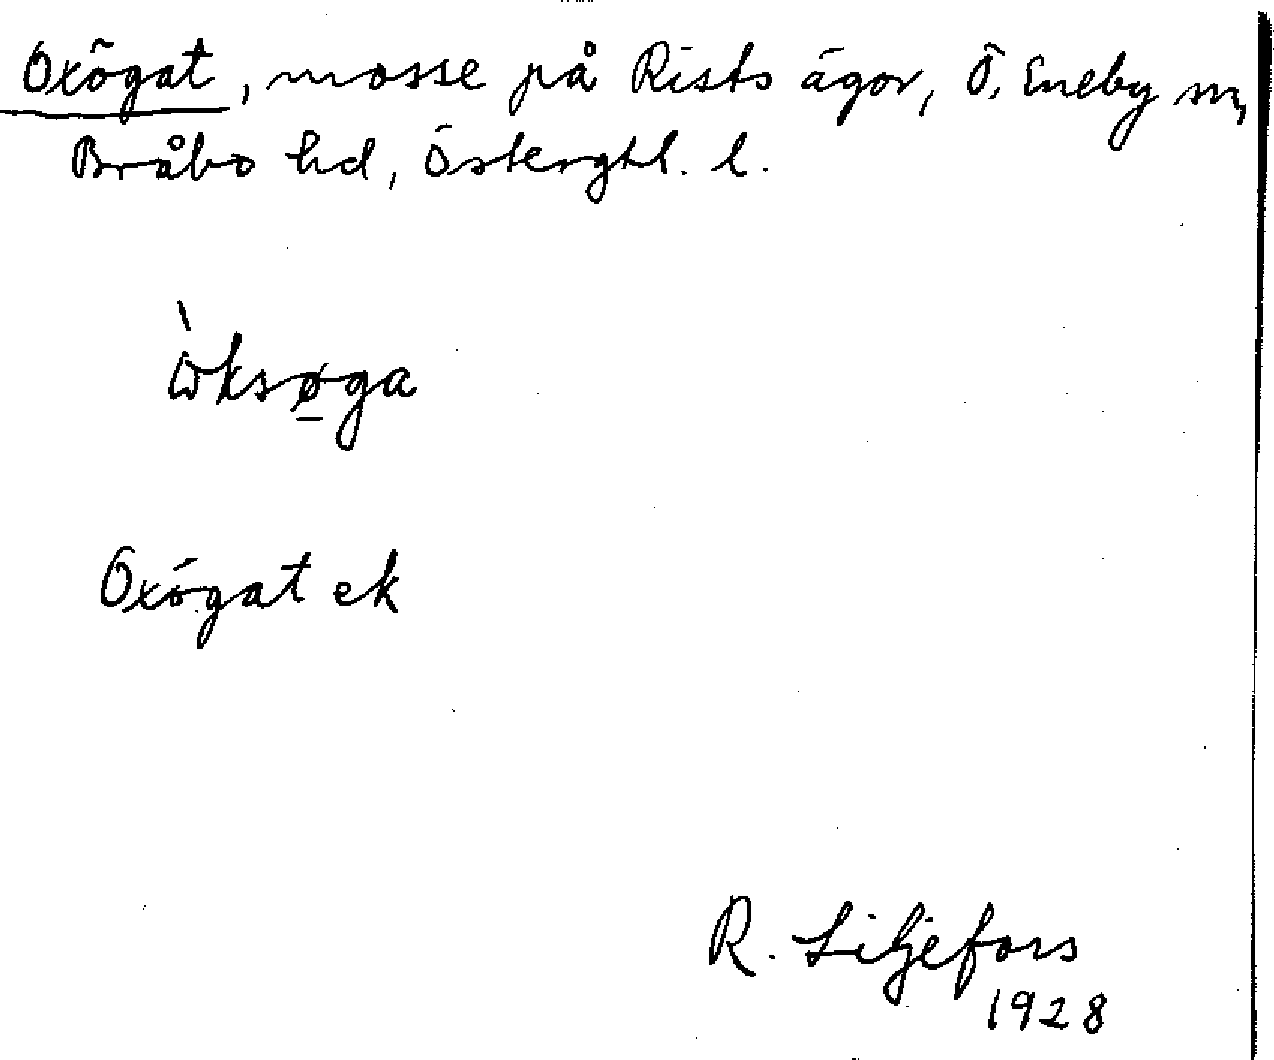 Oxögat, mosse på Rists ägor, Ö. Eneby sn,
Bråbo hd, Östergtl. l.
ὼksø̲ga
Oxögat ek
R. Liljefors
1928